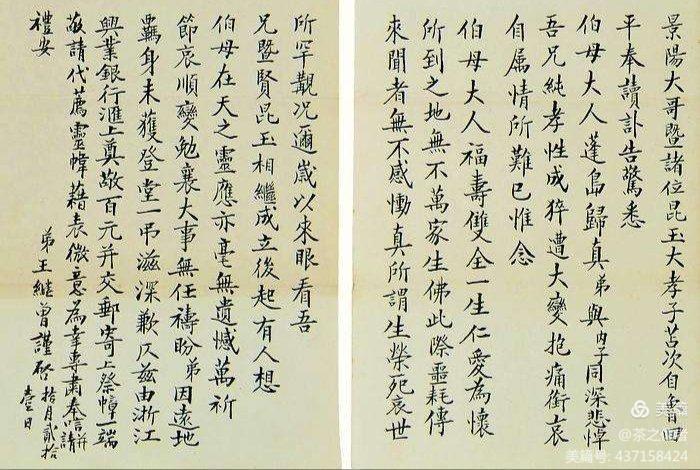 景陽大哥暨諸位昆玉大孝子苫次自魯回
平奉讀訃告驚悉
伯母大人蓬島歸真弟與內子同深悲悼
吾兄純孝性成猝遭大變抱痛銜哀
自屬情所難已惟念
伯母大人福壽雙全一生仁愛為懷
所到之地無不萬家生佛此際噩耗傳
來聞者無不感慟真所謂生榮死哀世
所罕覯况邇歲以來眼看吾
兄暨賢昆玉相繼成立後起有人想
伯母在天之靈應亦毫無遺憾萬祈
節哀順變勉襄大事無任禱盼弟因遠地
羈身未獲登堂一弔滋深歉仄茲由浙江
興業銀行滙上奠敬百元并交郵寄上祭幛一端
敬請代薦靈幃藉表微意為幸專肅奉唁併請
禮安
弟王繼曾謹啟 拾月貳拾
壹日
美篇
美篇号: 437158424